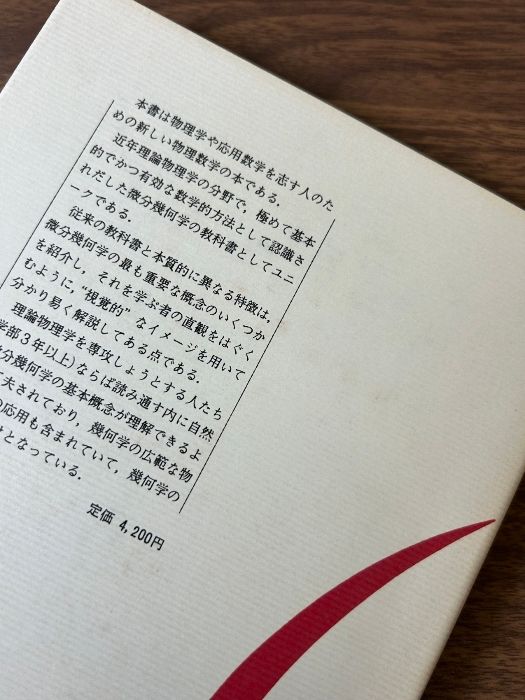 本書は物理学や応用数学を志す人のた
めの新しい物理数学の本である.
近年理論物理学の分野で，極めて基本
的でかつ有効な数学的方法として認識さ
れだした微分幾何学の教科書としてユニ
ークである.
従来の教科書と本質的に異なる特徴は，
微分幾何学の最も重要な概念のいくつか
を紹介し，それを学ぶ者の直観をはぐく
むように，“視覚的”なイメージを用いて
分かり易く解説してある点である.
理論物理学を専攻しようとする人たち
学部3年以上)ならば読み通す内に自然
分幾何学の基本概念が理解できるよ
夫されており，幾何学の広範な物
応用も含まれていて，幾何学の
となっている.
定価 4,200円